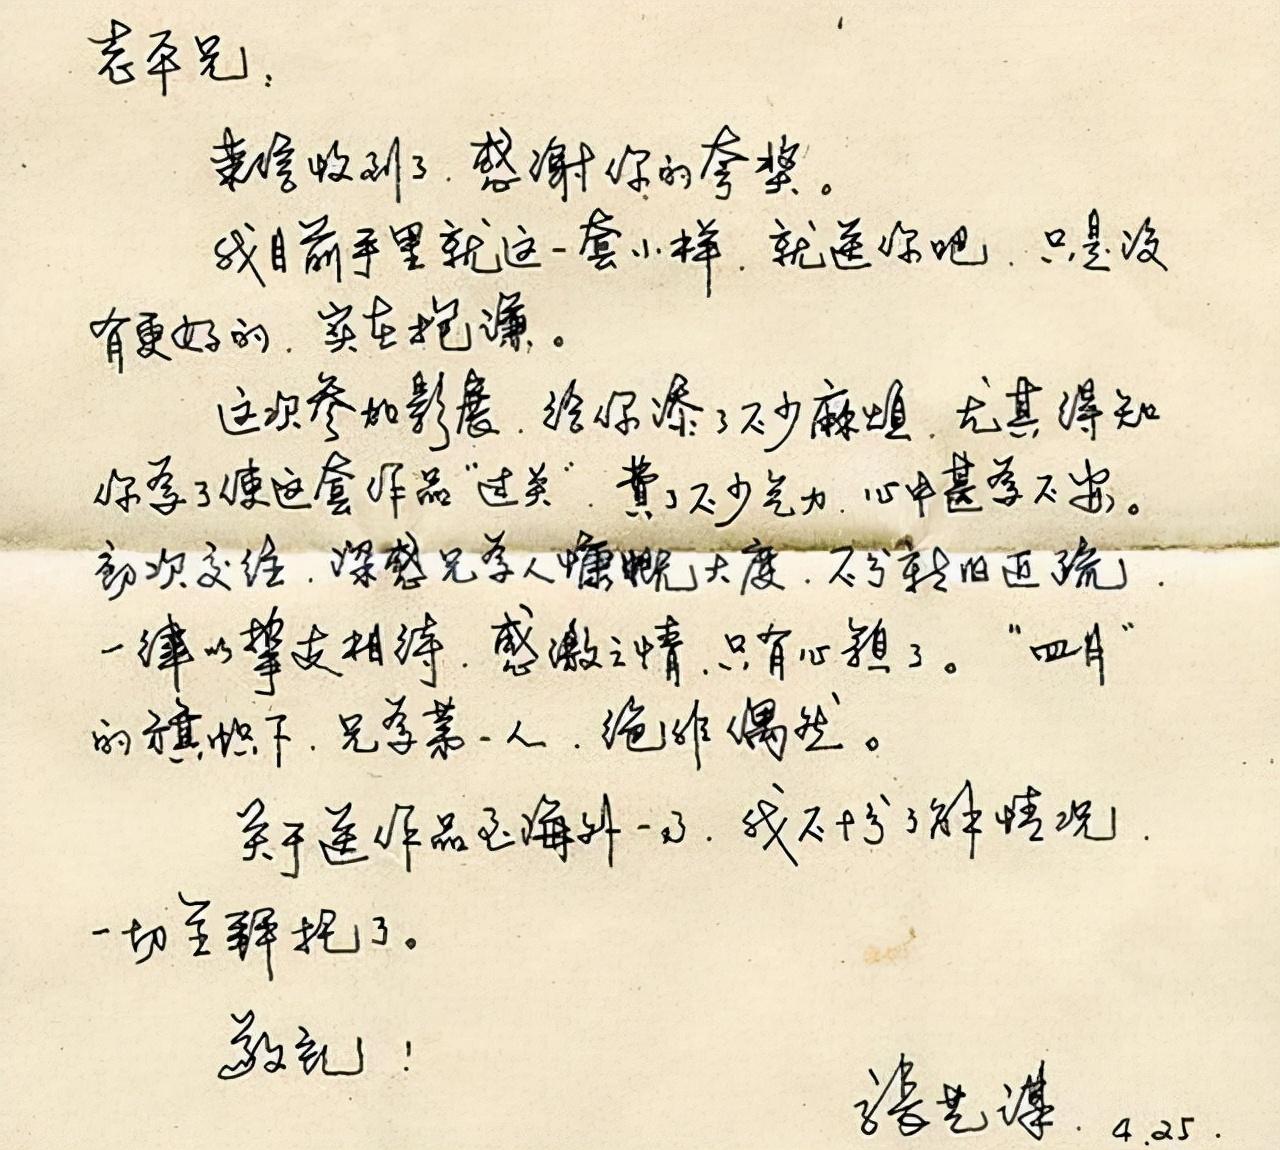 志平兄：
来信收到了．感谢你的夸奖。
我目前手里就这一套小样．就送你吧．只是没
有更好的．实在抱谦。
这次参加影展．给你添了不少麻烦．尤其得知
你为了使这套作品“过关”．費了不少气力．心中甚为不安。
初次交往．深感兄为人慷慨大度．不分新旧近疏．
一律以挚友相待．感激之情．只有心领了。“四月”
的旗帜下．兄为第一人．绝非偶然。
关于送作品至海外一事．我不十分了解情况．
一切全拜托了。
敬礼！
張艺谋．4.25．